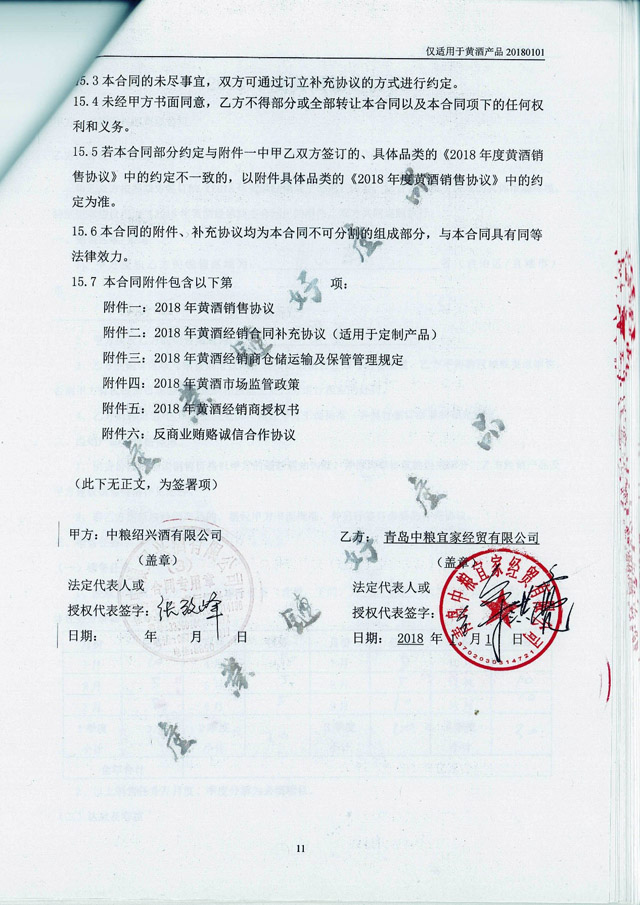 仅适用于黄酒产品 20180101
15.3 本合同的未尽事宜，双方可通过订立补充协议的方式进行约定。
15.4 未经甲方书面同意，乙方不得部分或全部转让本合同以及本合同项下的任何权
利和义务。
15.5 若本合同部分约定与附件一中甲乙双方签订的、具体品类的《2018 年度黄酒销
售协议》中的约定不一致的，以附件具体品类的《2018 年度黄酒销售协议》中的约
定为准。
15.6 本合同的附件、补充协议均为本合同不可分割的组成部分，与本合同具有同等
法律效力。
15.7 本合同附件包含以下第 项：
附件一：2018 年黄酒销售协议
附件二：2018 年黄酒经销合同补充协议（适用于定制产品）
附件三：2018 年黄酒经销商仓储运输及保管管理规定
附件四：2018 年黄酒市场监管政策
附件五：2018 年黄酒经销商授权书
附件六：反商业贿赂诚信合作协议
（此下无正文，为签署项）
甲方：中粮绍兴酒有限公司 乙方： 青岛中粮宜家经贸有限公司
（盖章） （盖章）
法定代表人或 法定代表人或
授权代表签字：张毅峰 授权代表签字：
日期： 年 月 日 日期： 2018 年 月 1 日
青岛中粮宜家经贸有限公司
3702030314721
11